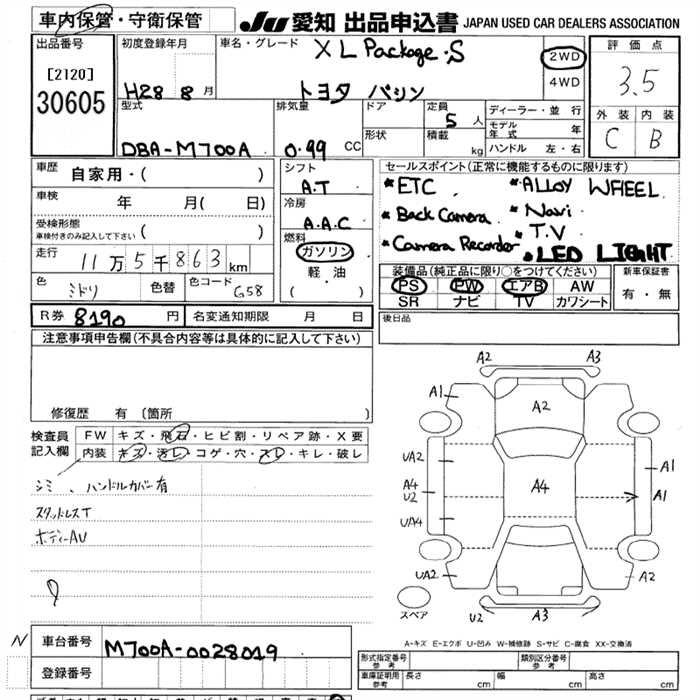 車内保管・守衛保管
JU 愛知 出品申込書 JAPAN USED CAR DEALERS ASSOCIATION
出品番号
[2120]
30605
初度登録年月
H28 8 月
車名・グレード
X L Package・S
トヨタ パッソ
2WD
4WD
評価点
3.5
外装 内装
C B
型式
DBA-M700A
排気量
0.99 CC
ドア
形状
定員
5 人
積載
kg
ディーラー・並行
モデル年式 年
ハンドル 左・右
車歴
自家用・( )
車検
年 月( 日)
受検形態
車検付きのみ記入して下さい ( )
走行
11万5千863km
色
ミドリ
色替
色コード
G58
シフト
A.T
冷房
A.A.C
燃料
ガソリン
軽・油
( )
セールスポイント(正常に機能するものに限ります)
* ETC * ALLOY WHEEL
* Back Camera * Navi
* T.V
* Camera Recorder * LED LIGHT
装備品(純正品に限り○をつけてください)
PS PW エアB AW
SR ナビ TV カワシート
新車保証書
有・無
R券 8190 円
名変通知期限 月 日
後日品
注意事項申告欄(不具合内容等は具体的に記入して下さい)
修復歴 有〔箇所 〕
検査員記入欄
FW キズ・飛石・ヒビ割・リペア跡・X要
内装 キズ・汚レ・コゲ・穴・スレ・キレ・破レ
シミ、ハンドルカバー有
スタッドレスT
ボディーAU
A2 A3
A1 A2
UA2
A4
U2
A4
A1
UA4
UA2 A2
U2 A3
スペア
A-キズ E-エクボ U-凹み W-補修跡 S-サビ C-腐食 XX-交換済
N
車台番号
M700A-0028019
登録番号
形式指定番号
参考
類別区分番号
参考
車庫証明用
参考
長さ cm 幅 cm 高さ cm